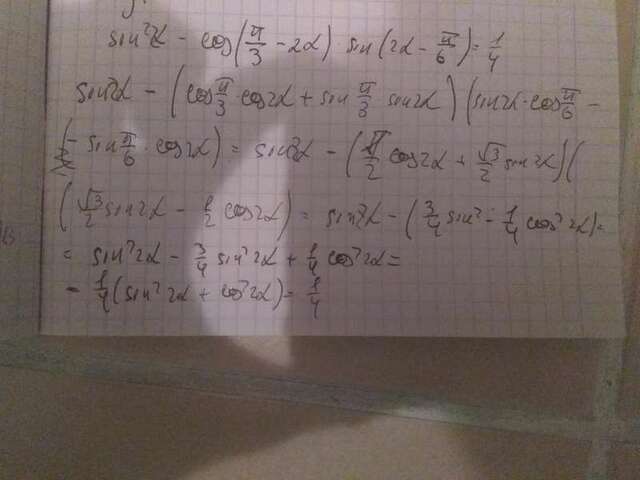 sin²2α - cos(π/3 - 2α) · sin(2α - π/6) = 1/4
sin²2α - (cos π/3 · cos2α + sin π/3 sin2α)(sin2α · cos π/6 -
- sin π/6 · cos2α) = sin²2α - (1/2 cos2α + √3/2 sin2α)(
(√3/2 sin2α - 1/2 cos2α) = sin²2α - (3/4 sin² - 1/4 cos²2α) =
= sin²2α - 3/4 sin²2α + 1/4 cos²2α =
= 1/4 (sin²2α + cos²2α) = 1/4